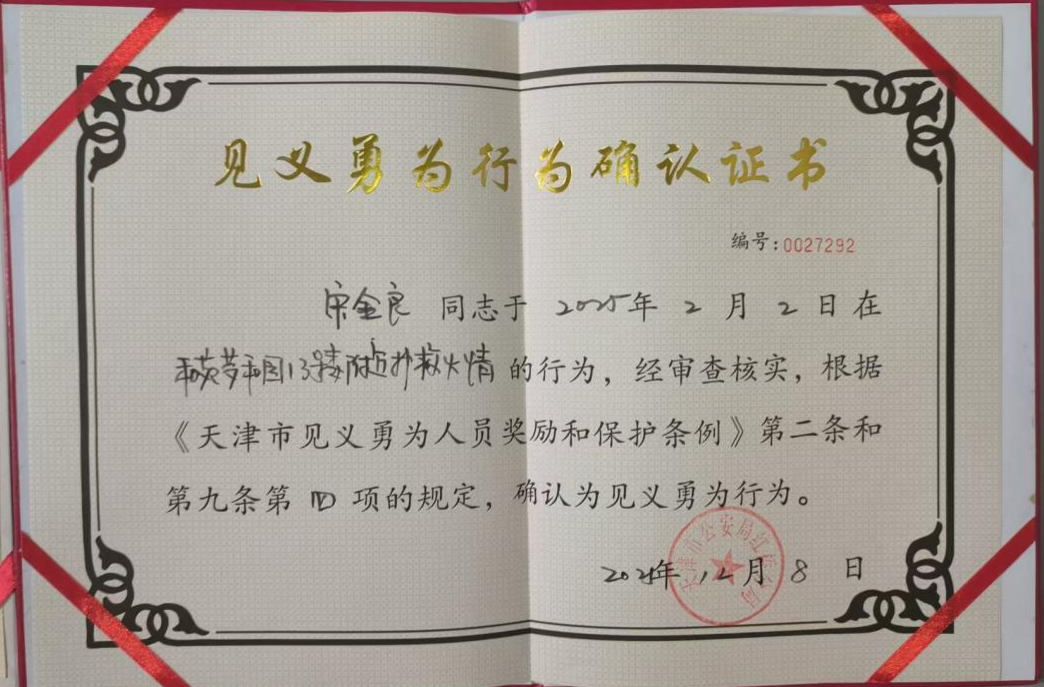 见义勇为行为确认证书
编号:0027292
宋金良 同志于 2025年 2 月 2 日在
13号楼附近扑救火情的行为，经审查核实，根据
《天津市见义勇为人员奖励和保护条例》第二条和
第九条第 四 项的规定，确认为见义勇为行为。
年 12月 8 日
天津市公安局红桥分局